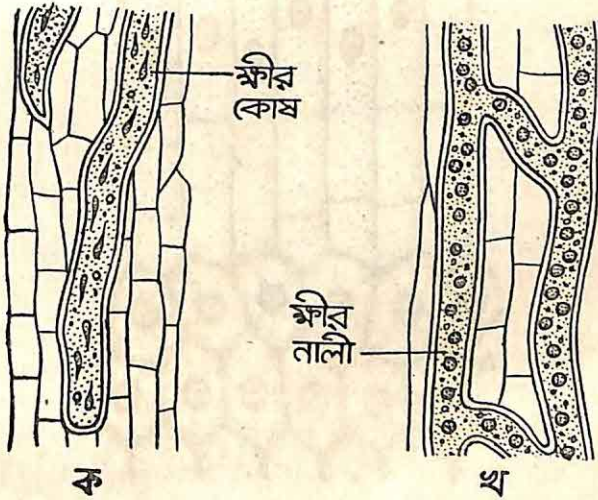 ক্ষীর
কোষ
ক্ষীর
নালী
ক
খ